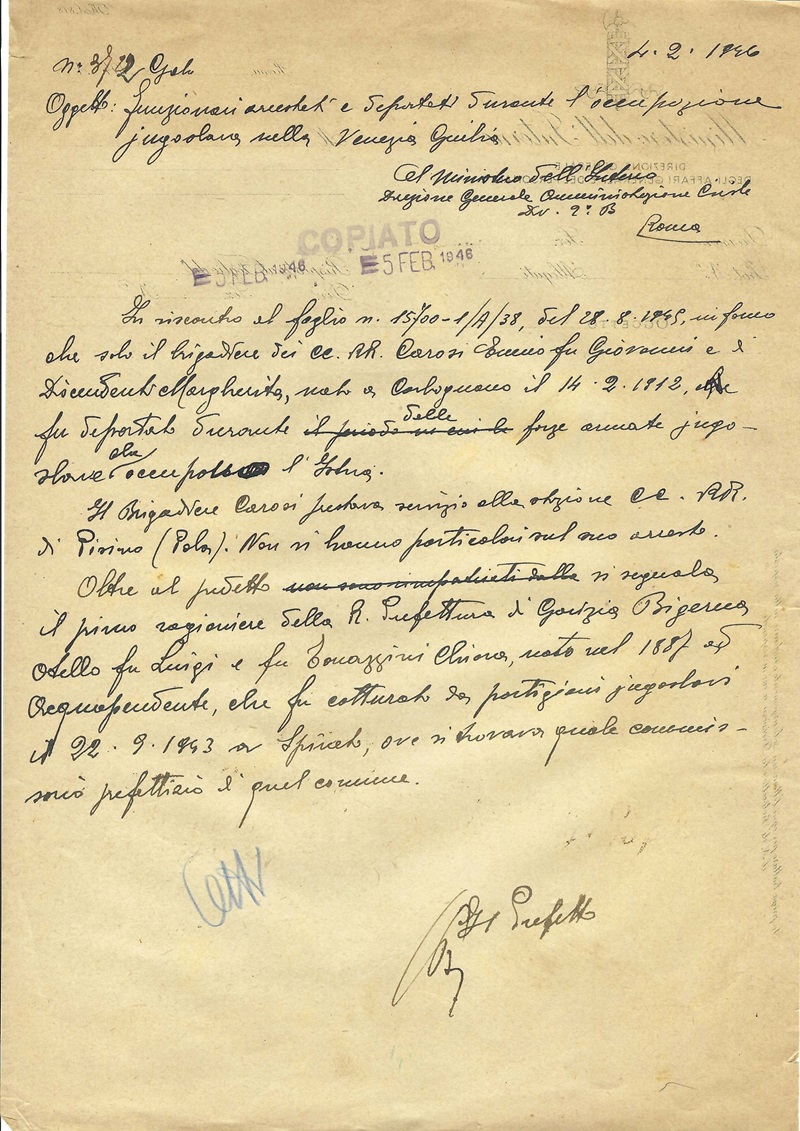 4. 2. 1946
Nº 3712 Gab
Oggetto: Funzionari arrestati e deportati durante l'occupazione
jugoslava nella Venezia Giulia
Al Ministero dell'Interno
Direzione Generale Amministrazione Civile
Div. 2ª B
Roma
COPIATO
5 FEB. 1946 5 FEB. 1946
In riscontro al foglio n. 15700-1/A/38, del 28.8.1945, informo
che solo il brigadiere dei CC. RR. Carosi Ennio fu Giovanni e di
Discendenti Margherita, nato a Carbognano il 14.2.1912,
fu deportato durante il periodo in cui le delle forze armate jugo-
slave che l'Istria.
Il Brigadiere Carosi prestava servizio alla stazione CC. RR.
di Pisino (Pola). Non si hanno particolari sul suo arresto.
Oltre al predetto non sono rimpatriati dalla si segnala
il primo ragioniere della R. Prefettura di Gorizia Bigerna
Otello fu Luigi e fu Tonazzini Chiara, nato nel 1887 ad
Acquapendente, che fu catturato da partigiani jugoslavi
il 22.9.1943 a ove si trovava quale commis-
sario prefettizio di quel comune.
Il Prefetto